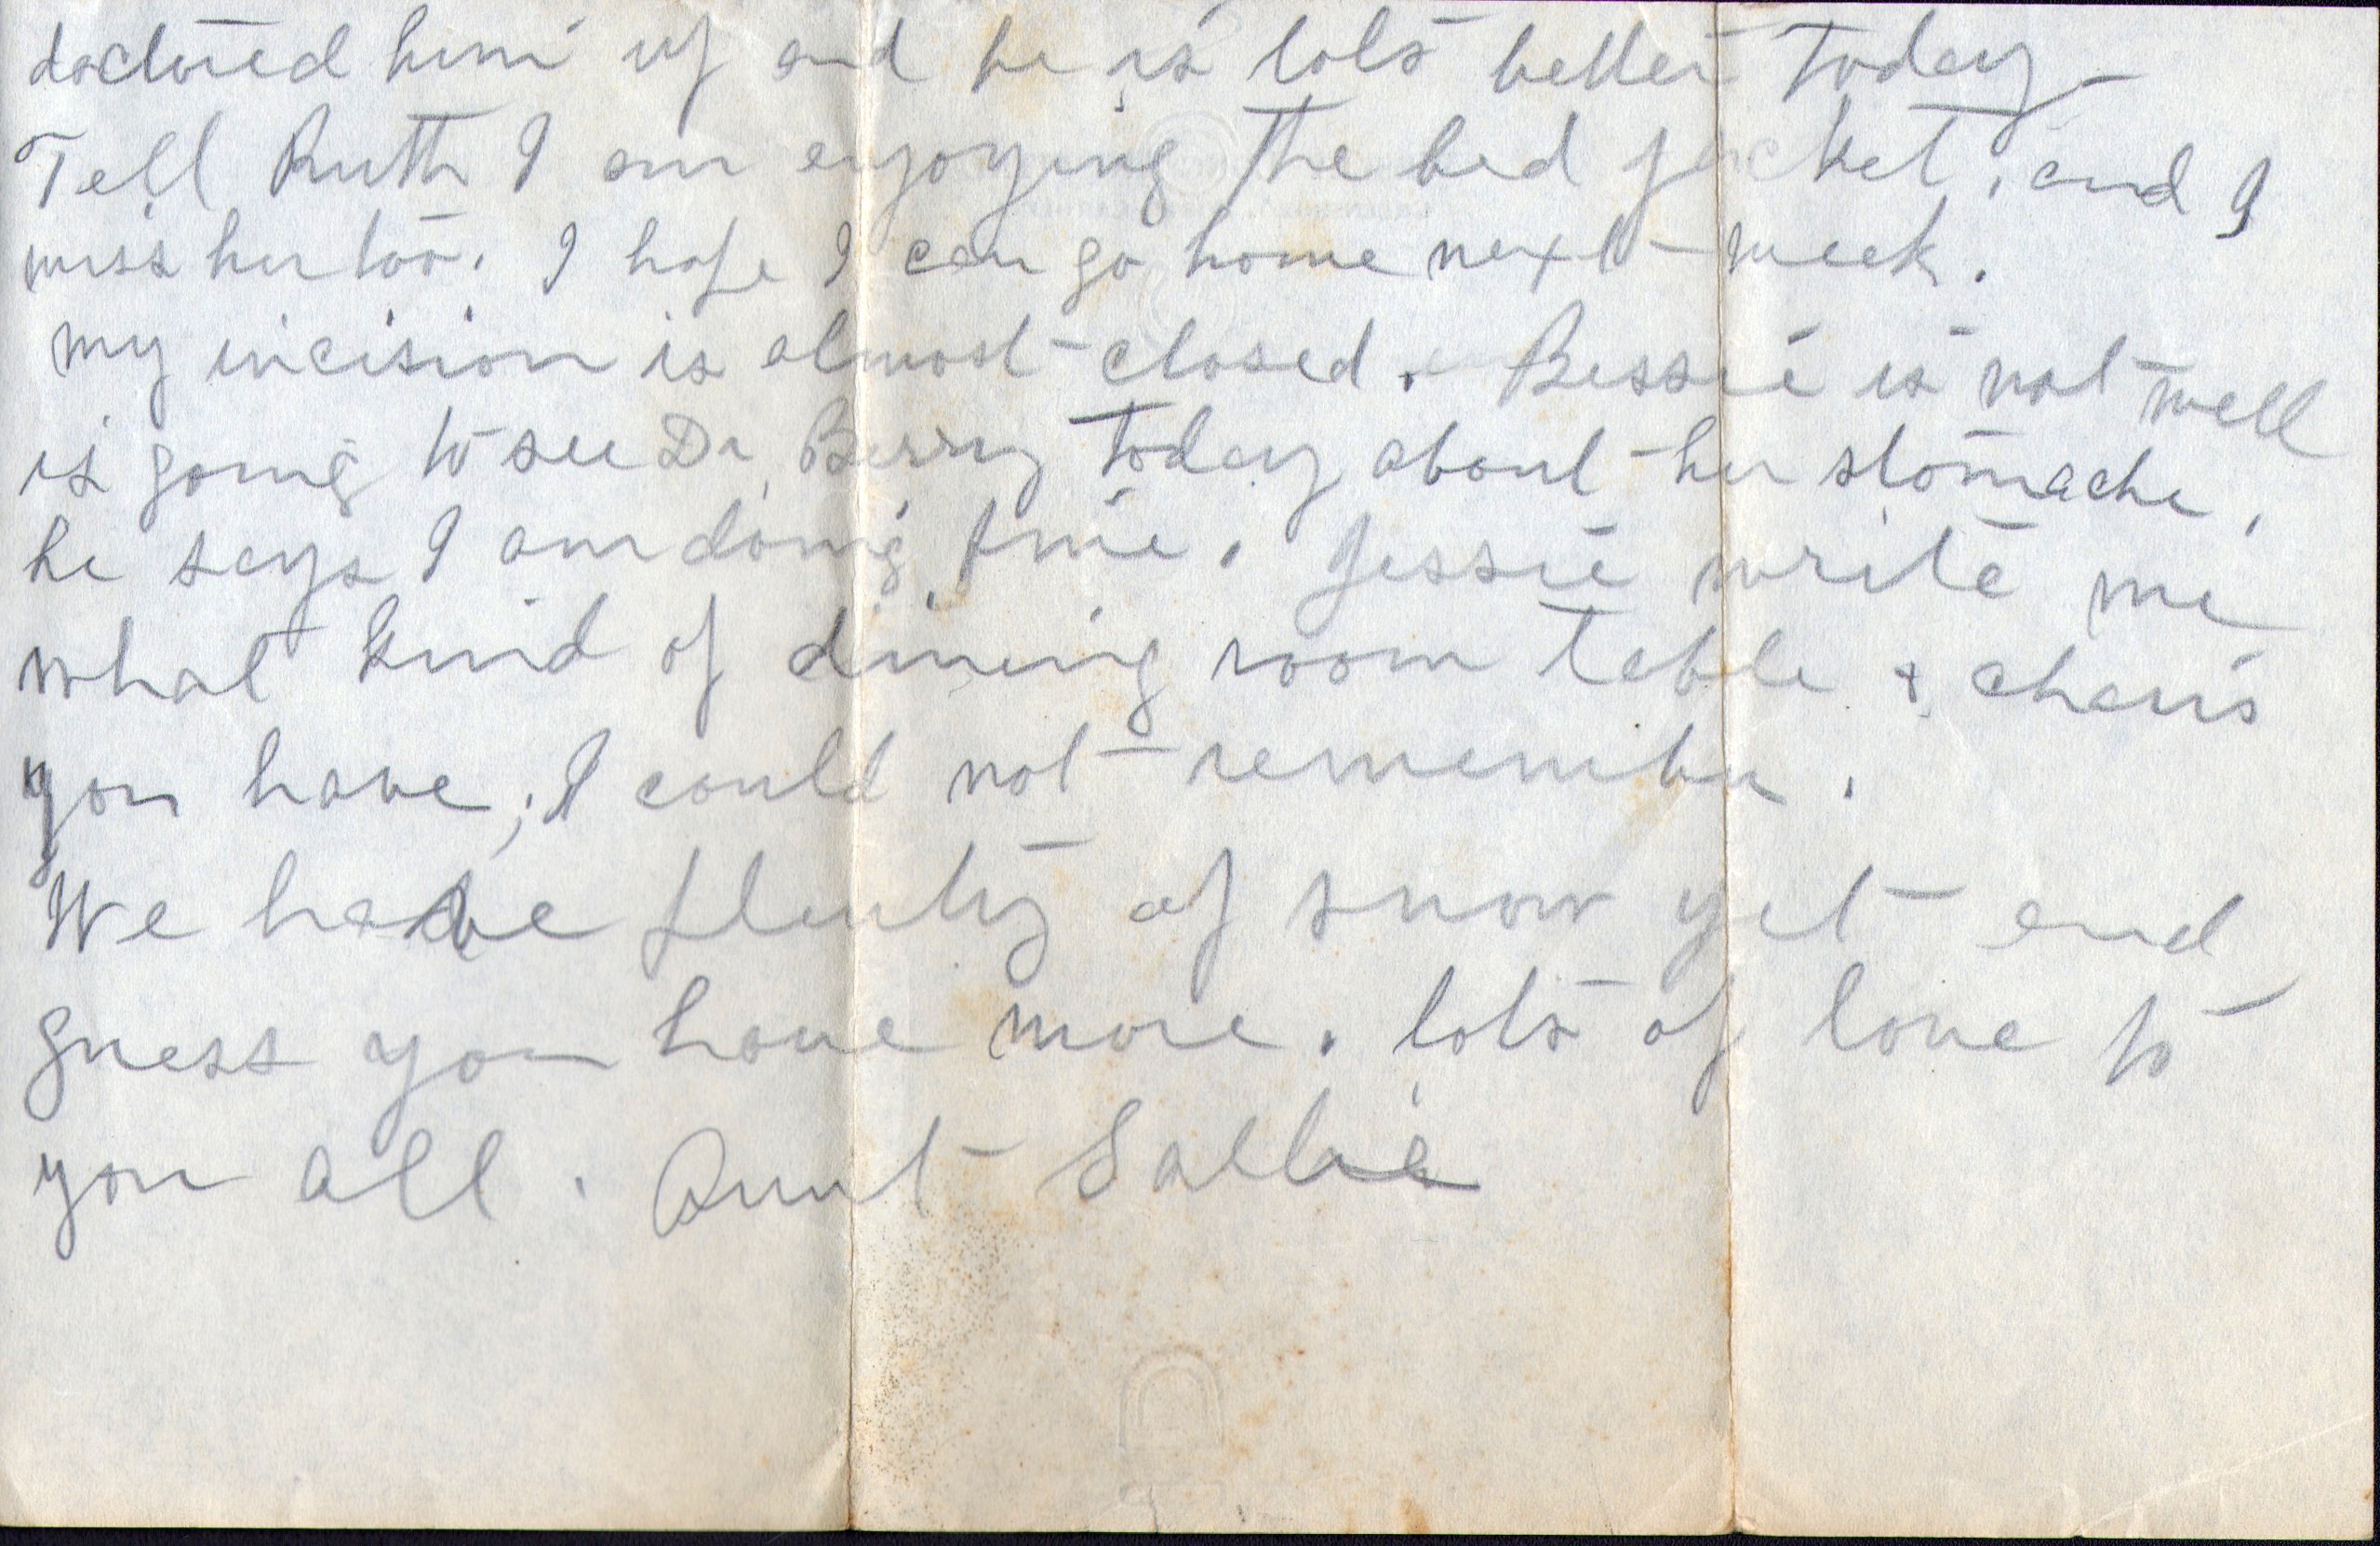 doctored him up and he is lots better today -
Tell Ruth I am enjoying the bed jacket, and I
miss her too. I hope I can go home next week.
my incision is almost closed. Bessie is not well
is going to see Dr. Berry today about her stomache,
he says I am doing fine. Jessie write me
what kind of dining room table & chairs
you have, I could not remember.
We have plenty of snow yet and
guess you have more. lots of love to
you all. Aunt Sallie